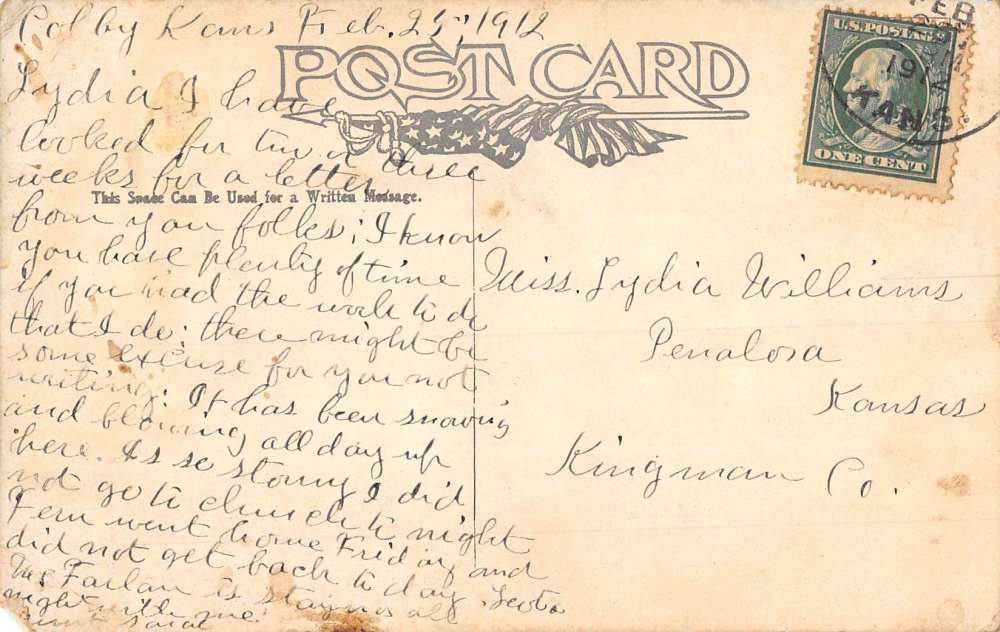 Colby Kans Feb. 25, 1912
POST CARD
Lydia I have
looked for two or three
weeks for a letter
This Space Can Be Used for a Written Message.
from you folks; I know
you have plenty of time
if you had the work to do
that I do; there might be
some excuse for you not
writing. It has been snowing
and blowing all day up
here. Is so stormy I did
not go to church to night
Fern went home Friday and
did not get back to day. Leota
McFarlan is staying all
night with me
Aunt
U.S. POSTAGE
ONE CENT
FEB
191
KANS.
Miss. Lydia Williams
Penalosa
Kansas
Kingman Co.